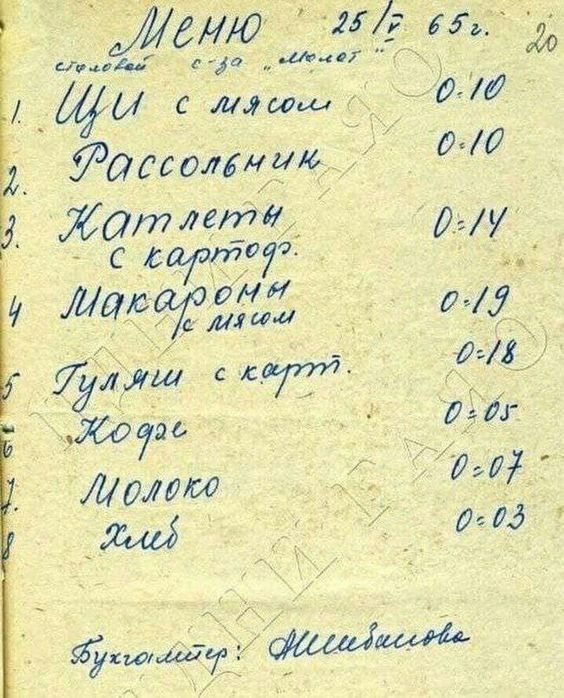 Меню 25/V 65г. 20
столовой с-за "Молот"
1. Щи с мясом 0=10
2. Рассольник 0=10
3. Катлеты 0=14
с картоф.
4 Макароны 0=19
с мясом
5 Гуляш с карт. 0=18
6 Кофе 0=05
7. Молоко 0=07
8 Хлеб 0=03
Бухгалтер: